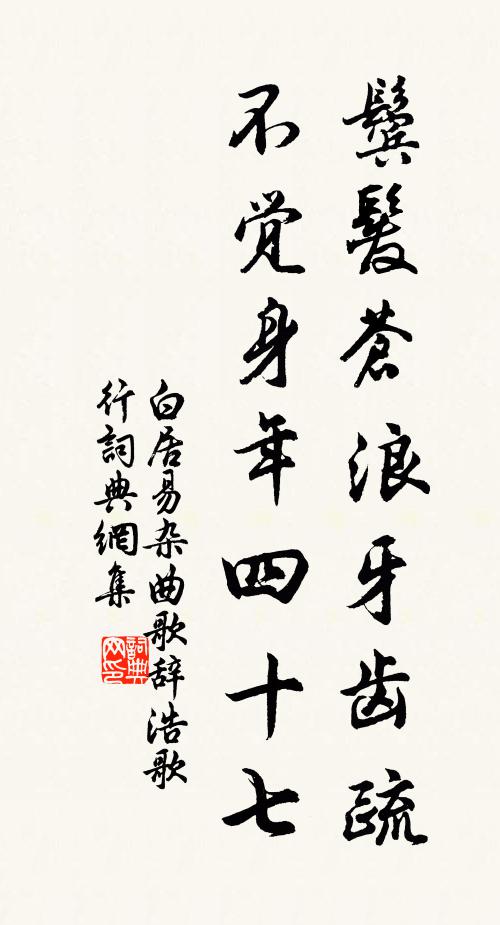 鬓髮蒼浪牙齿疏
不觉身年四十七
白居易杂曲歌辞浩歌
行詞典網集
詞典
网印